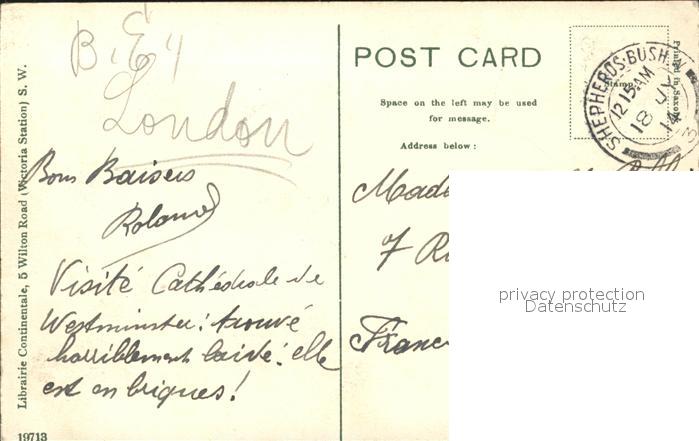 B. E 4
London
Bons Baisers
Roland
Visité Cathédrale de
Westminster: trouvé
horriblement laide: elle
est en briques!
Librairie Continentale, 5 Wilton Road (Victoria Station) S. W.
19713
POST CARD
Space on the left may be used
for message.
Address below:
Stamp
Printed in Saxony
SHEPHERDS·BUSH
12 15AM
18 JY
14
Mad
7 R
Franc
privacy protection
Datenschutz